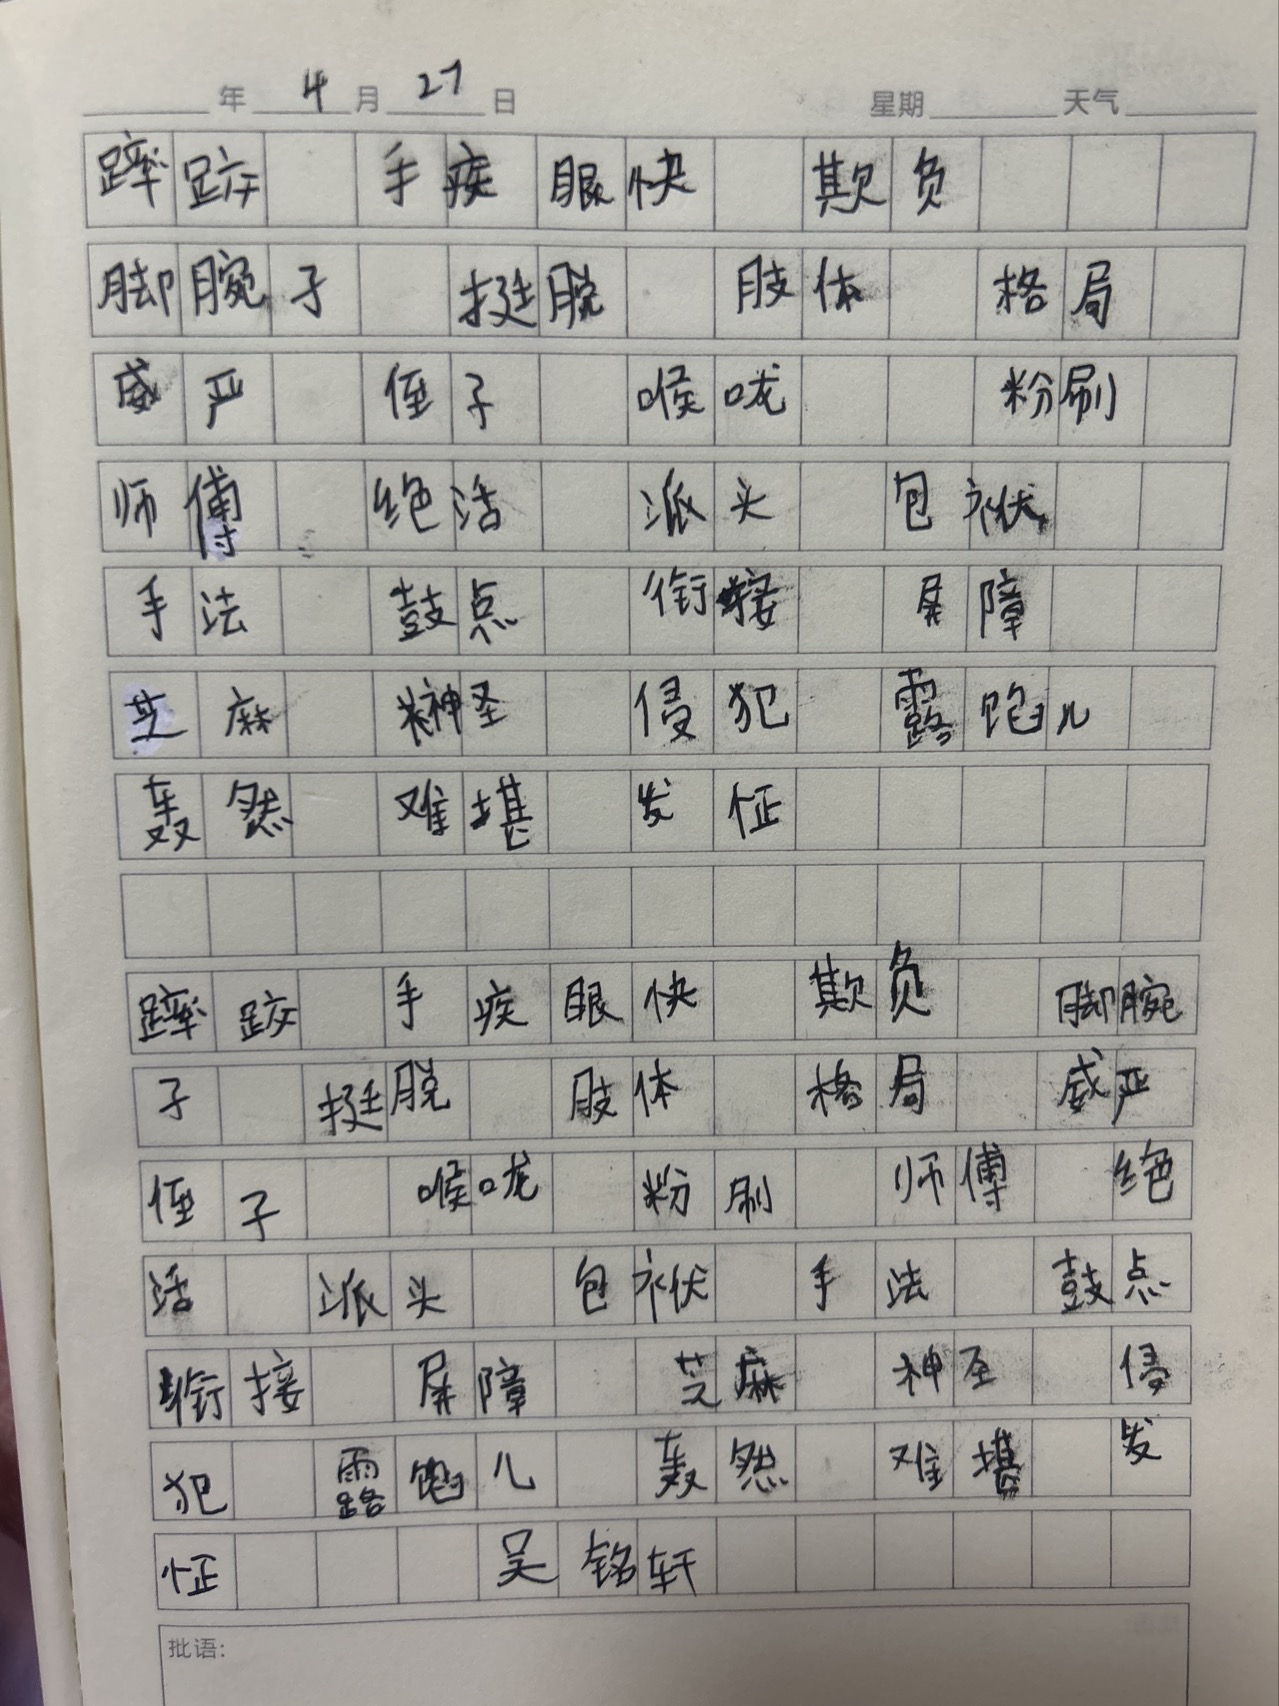 年 4 月 27 日 星期 天气
蹿 跤 手疾眼快 欺负
脚腕子 挺脱 肢体 格局
威严 侄子 喉咙 粉刷
师傅 绝活 派头 包袱
手法 鼓点 衔接 屏障
芝麻 神圣 侵犯 露馅儿
轰然 难堪 发怔
跤 手疾眼快 欺负 脚腕
子 挺脱 肢体 格局 威严
侄子 喉咙 粉刷 师傅 绝
活 派头 包袱 手法 鼓点
衔接 屏障 芝麻 神圣 侵
犯 露馅儿 轰然 难堪 发
怔 吴铭轩
批语: